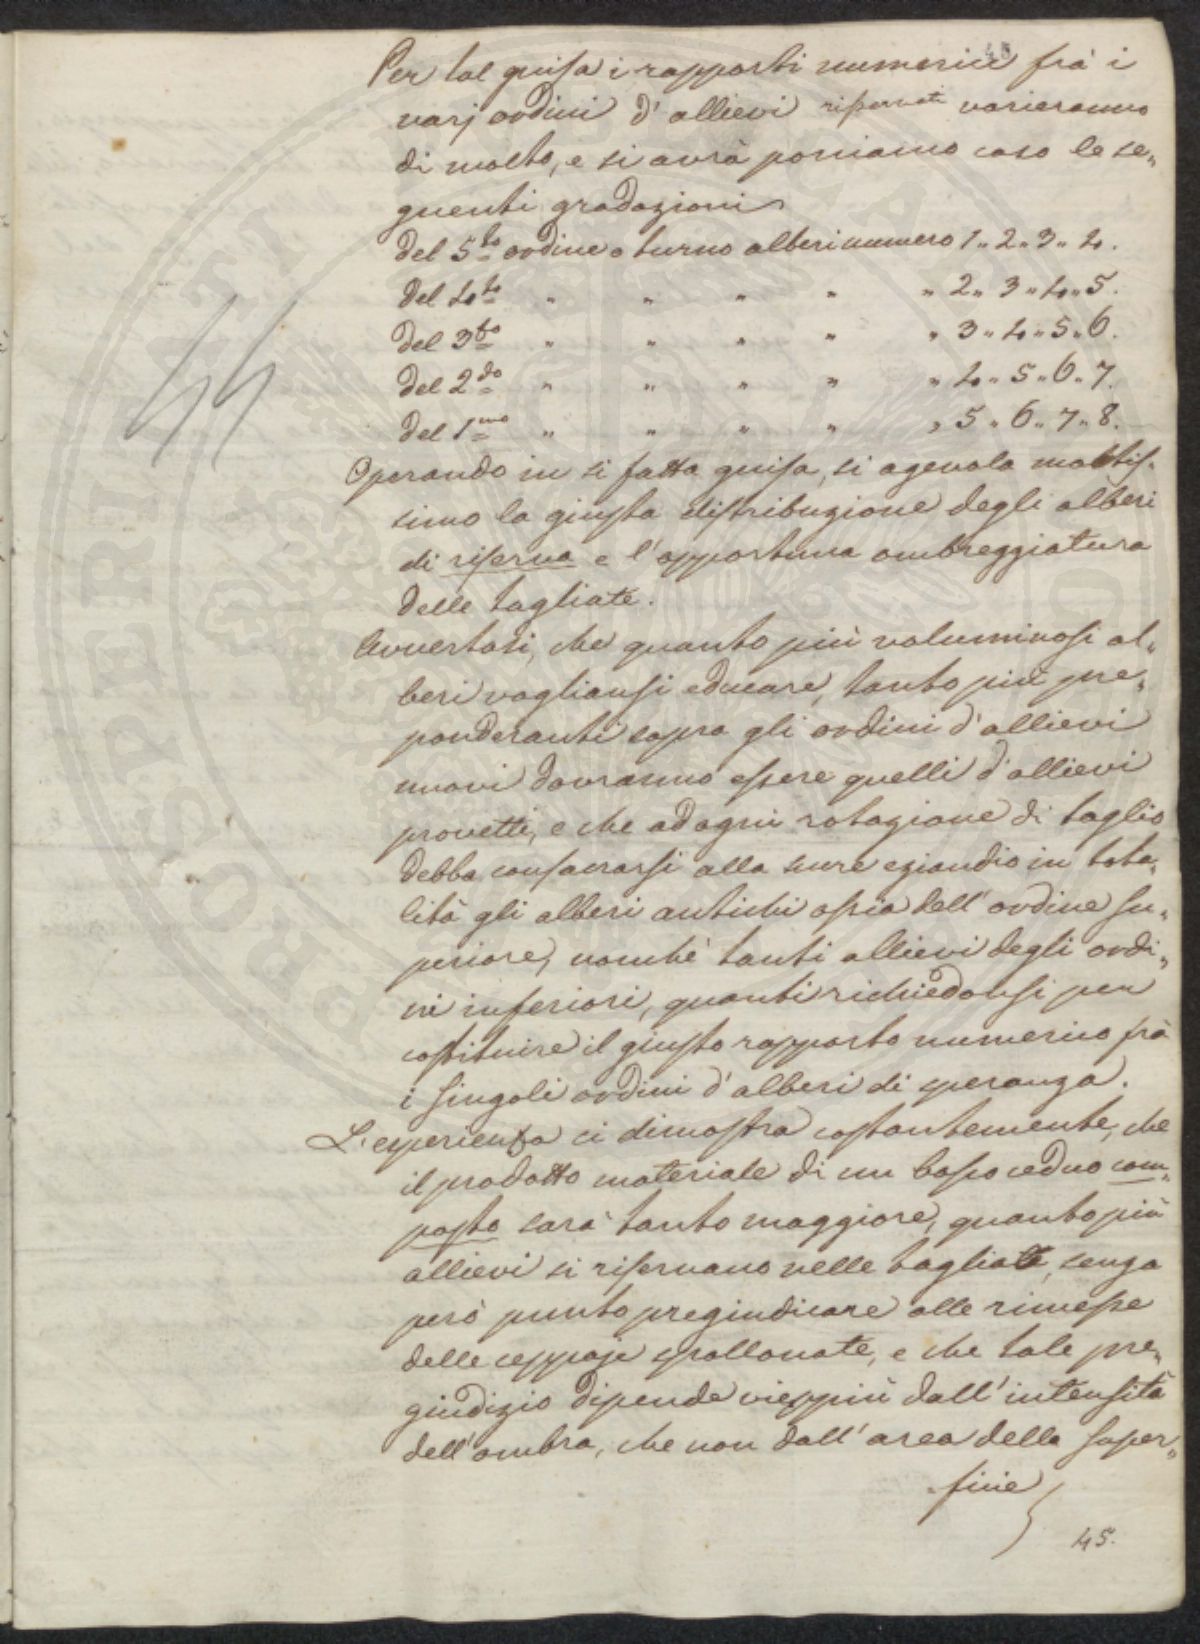 Per tal guisa i rapporti numerici frà i
varj ordini d'allievi riservati varieranno
di molto, e si avrà poniamo caso le se„
guenti gradazioni
del 5to ordine o turno alberi numero 1„ 2„ 3„ 4.
del 4to „ „ „ „ „ 2„ 3„ 4„ 5.
del 3zo „ „ „ „ „ 3„ 4„ 5„ 6.
del 2do „ „ „ „ „ 4„ 5„ 6„ 7.
del 1mo „ „ „ „ „ 5„ 6„ 7„ 8.
44
Operando in si fatta guisa, si agevola moltis„
simo la giusta distribuzione degli alberi
di riserva e l'opportuna ombreggiatura
delle tagliate.
Avvertasi, che quanto più voluminosi al„
beri vogliansi educare, tanto più pre„
ponderanti sopra gli ordini d'allievi
nuovi dovranno essere quelli d'allievi
provetti, e che ad ogni rotazione di taglio
debba consacrarsi alla scure eziandio in tota„
lità gli alberi antichi ossia dell'ordine su„
periore, nonchè tanti allievi degli ordi„
ni inferiori, quanti richiedonsi per
costituire il giusto rapporto numerico frà
i singoli ordini d'alberi di speranza.
L'esperienza ci dimostra costantemente, che
il prodotto materiale di un bosco ceduo com„
posto sarà tanto maggiore, quanto più
allievi si riservano nelle tagliate, senza
però punto pregiudicare alle rimesse
delle ceppaje spollonate, e che tale pre„
giudizio dipende vieppiù dall'intensità
dell'ombra, che non dall'area della super„
ficie
45.
PROSPERITATI